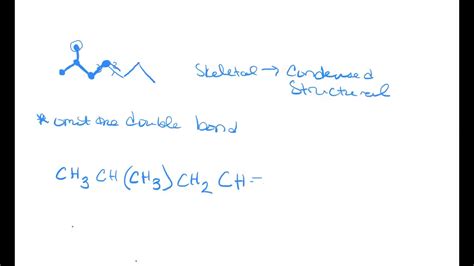 Skeletal → Condensed
Structural
* omit one double bond
CH₃ CH (CH₃) CH₂ CH=